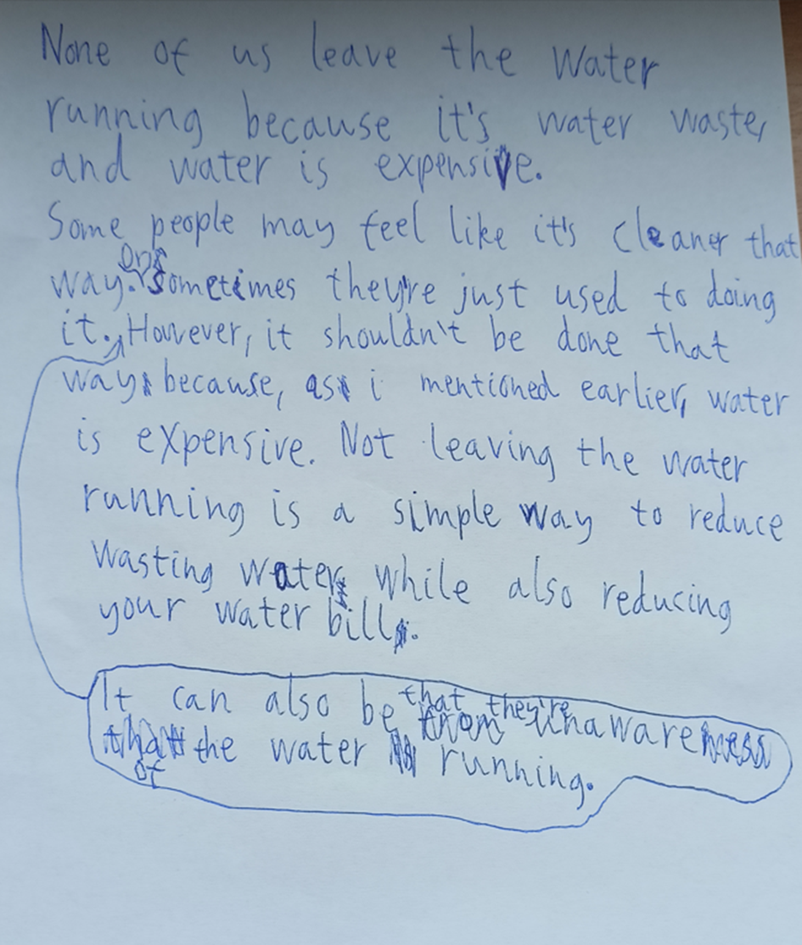 None of us leave the water
running because it's water waste,
and water is expensive.
Some people may feel like it's cleaner that
way. Or sometimes they're just used to doing
it. However, it shouldn't be done that
way, because, as i mentioned earlier, water
is expensive. Not leaving the water
running is a simple way to reduce
wasting water, while also reducing
your water bill.
It can also be that they're unaware
of the water running.